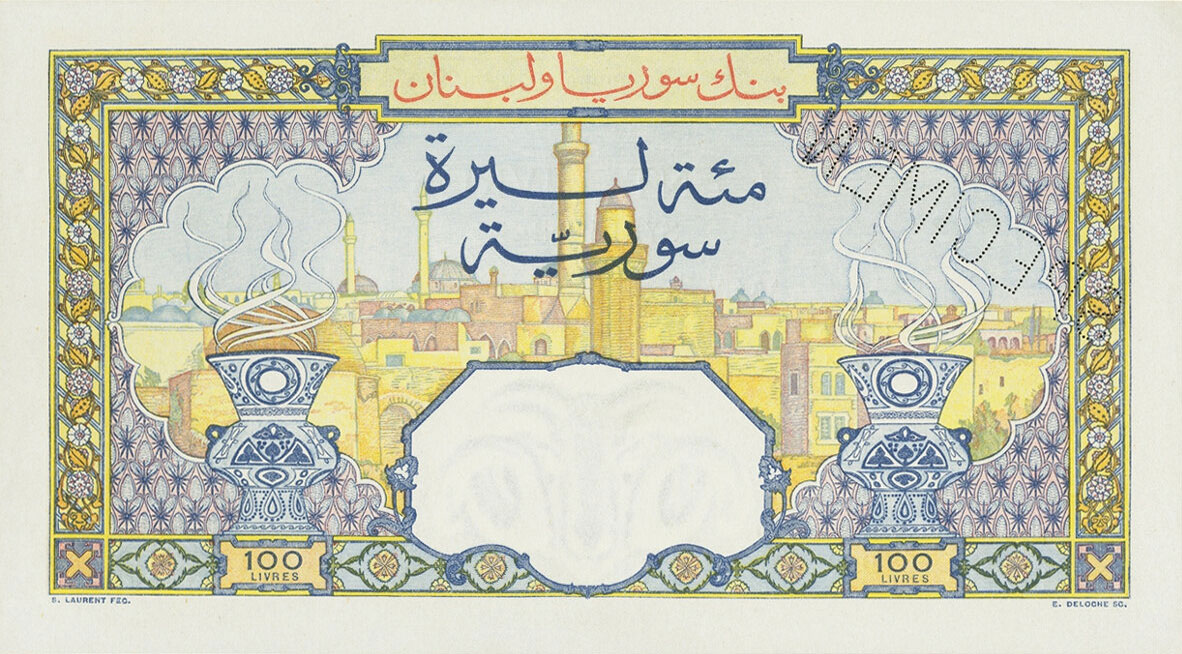 بنك سوريا ولبنان
مئة ليرة
سوريّة
SPECIMEN
100
LIVRES
100
LIVRES
S. LAURENT FEC.
E. DELOCHE SC.